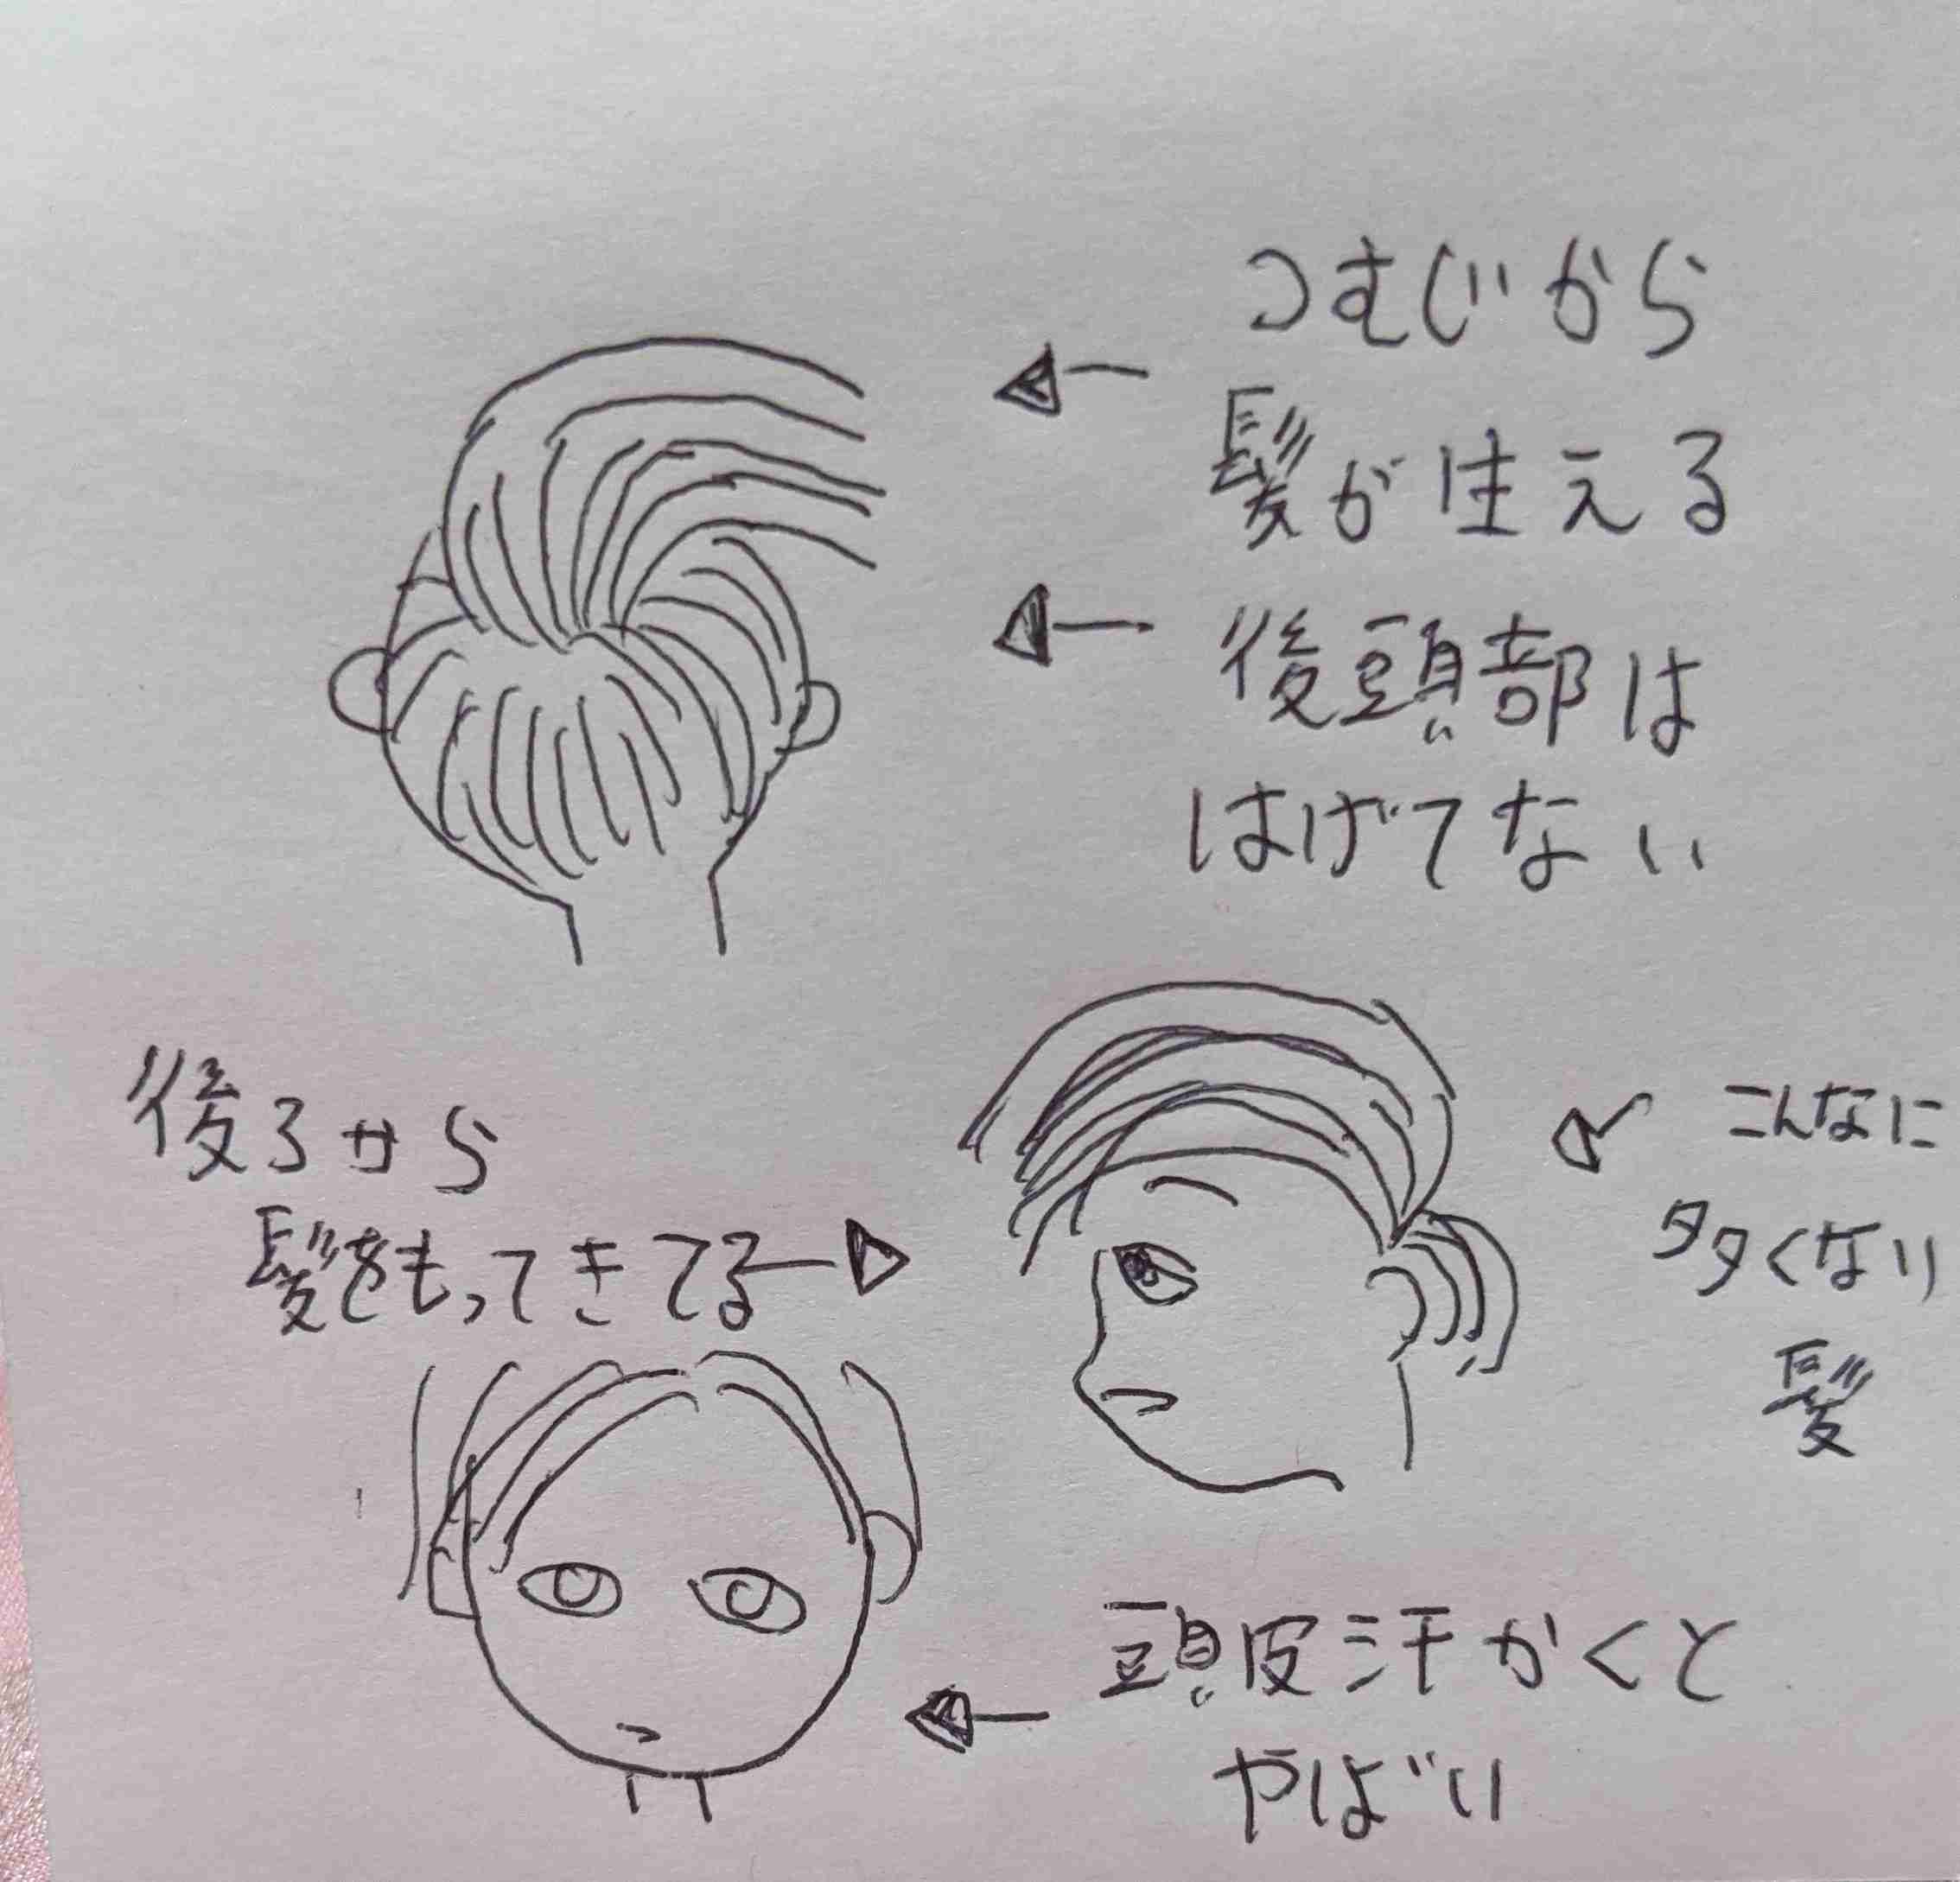 つむじから
髪が生える
後頭部は
はげてない
後ろから
髪をもってきてる
こんなに
多くない
髪
頭皮汗かくと
やばい